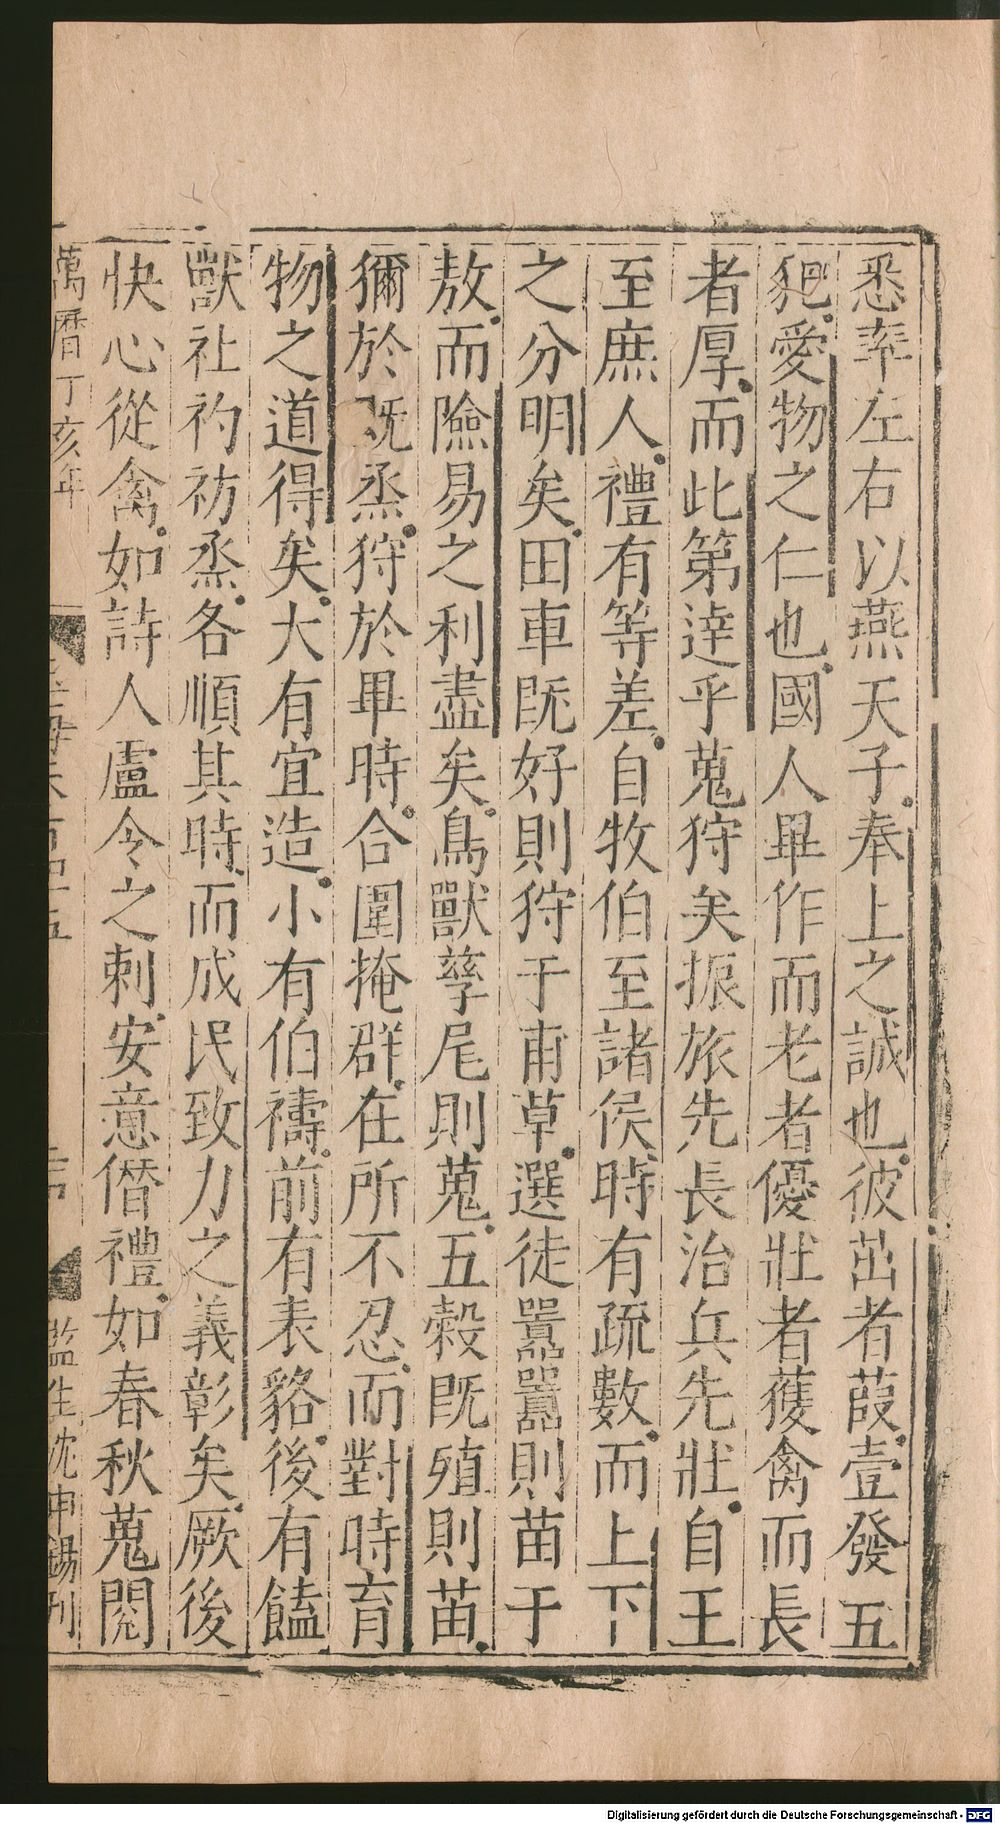 悉率左右以燕天子奉上之誠也彼茁者葭壹發五
豝愛物之仁也國人畢作而老者優壯者獲禽而長
者厚而此第達乎蒐狩矣振旅先長治兵先壯自王
至庶人禮有等差自牧伯至諸侯時有疏數而上下
之分明矣田車既好則狩于甫草選徒囂囂則苗于
敖而險易之利盡矣鳥獸孳尾則蒐五穀既殖則苗
獮於既烝狩於畢時合圍掩群在所不忍而對時育
物之道得矣大有宜造小有伯禱前有表貉後有饁
獸社礿祊烝各順其時而成民致力之義彰矣厥後
快心從禽如詩人盧令之刺安意僭禮如春秋蒐閱
萬曆丁亥年
百四十五
監生沈申錫刊
Digitalisierung gefördert durch die Deutsche Forschungsgemeinschaft - DFG